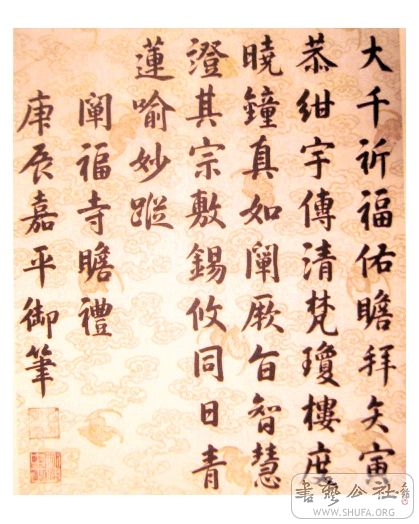 大千祈福佑瞻拜矢寅
恭紺宇傳清梵瓊樓度
曉鐘真如闡厥旨智慧
澄其宗敷錫攸同日青
蓮喻妙蹤
闡福寺瞻禮
庚辰嘉平御筆
WWW.SHUFA.ORG